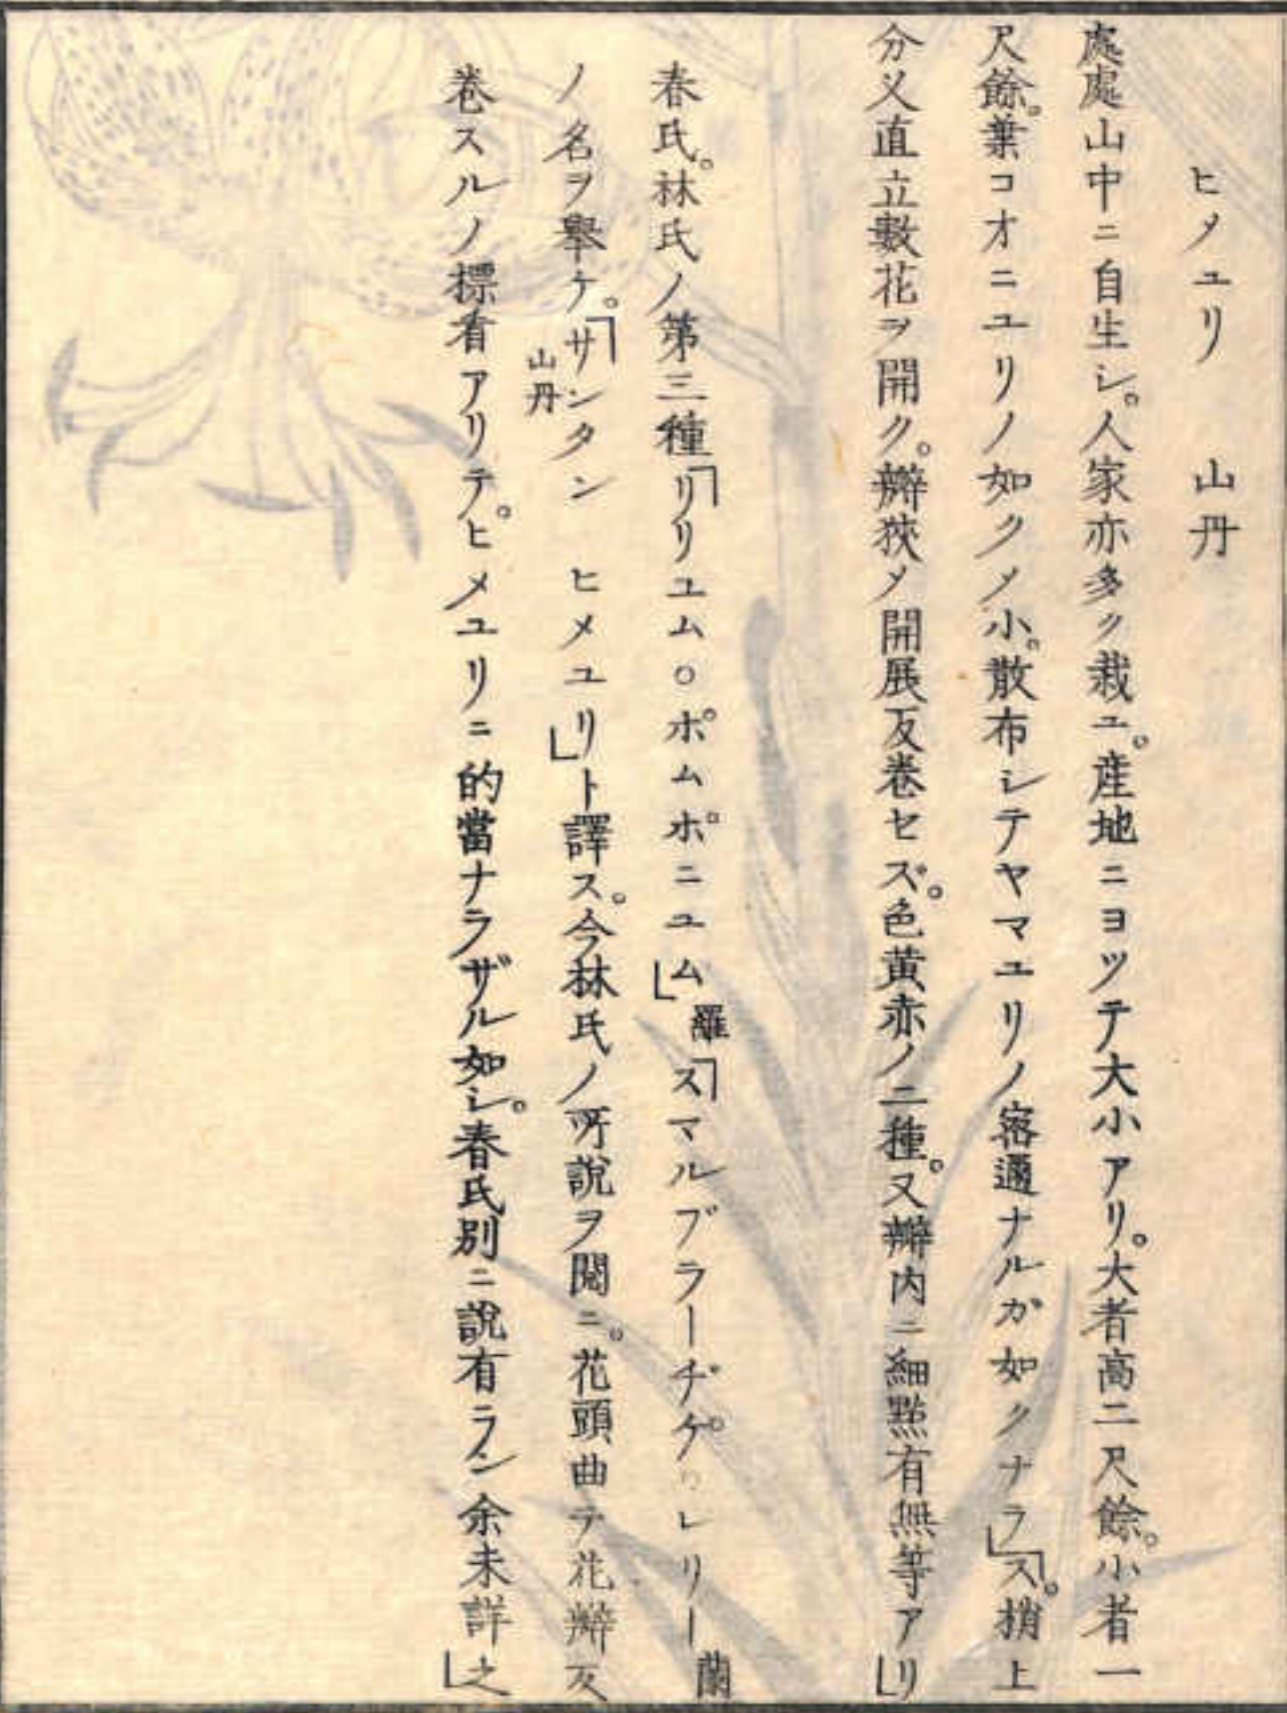 ヒメユリ　山丹
處處山中ニ自生シ。人家亦多ク栽ユ。産地ニヨツテ大小アリ。大者高二尺餘。小者一
尺餘。葉コオニユリノ如クメ小。散布シテヤマユリノ密邇ナルカ如クナラ」「ス。梢上
分义直立數花ヲ開ク。瓣狹メ開展反卷セズ。色黄赤ノ二種。又瓣内ニ細點有無等アリ」
春氏。林氏ノ第三種「リリユム○ポムポニユム」羅「スマルブラーヂゲ。レリー蘭
ノ名ヲ擧ケ。「サンタン山丹　ヒメユリ」ト譯ス。今林氏ノ所說ヲ閱ニ。花頭曲テ花瓣反
卷スルノ標者アリテ。ヒメユリニ的當ナラザル如シ。春氏別ニ說有ラン余未詳之」